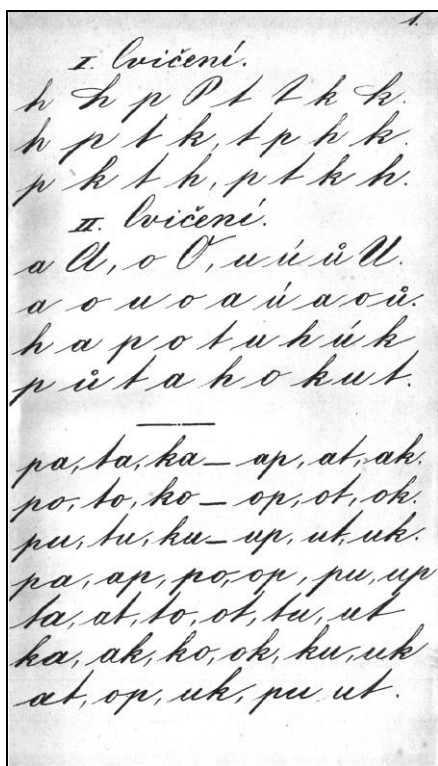 1.
I. Cvičení.
h H h p P t T k K.
h p t k, t p h k.
p k t h, p t k h.
II. Cvičení.
a A, o O, u ú ů U.
a o u o a ú a o ů.
h a p o t u h ú k
p ů t a h o k u t.
pa, ta, ka – ap, at, ak.
po, to, ko – op, ot, ok.
pu, tu, ku – up, ut, uk.
pa, ap, po, op, pu, up
ta, at, to, ot, tu, ut
ka, ak, ko, ok, ku, uk
at, op, uk, pu ut.